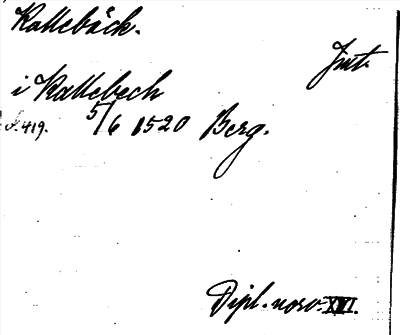 Kallebäck.
Jnt.
i Kallebech
s. 419. 5/6 1520 Berg.
Dipl. norv. XVI.